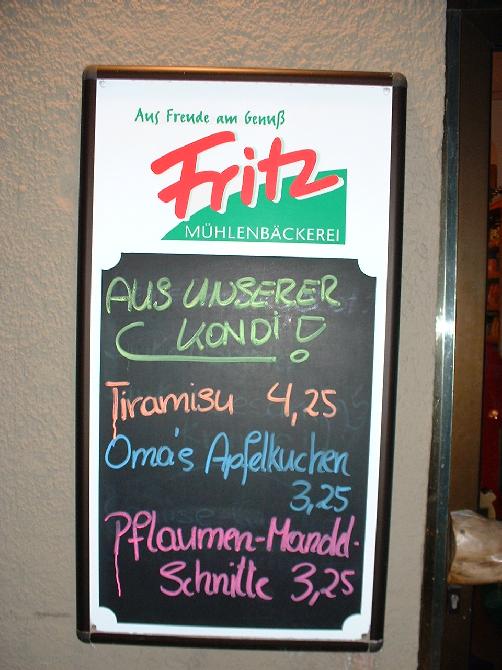 Aus Freude am Genuß
Fritz
MÜHLENBÄCKEREI
AUS UNSERER
KONDI!
Tiramisu 4,25
Oma's Apfelkuchen
3,25
Pflaumen-Mandel-
Schnitte 3,25